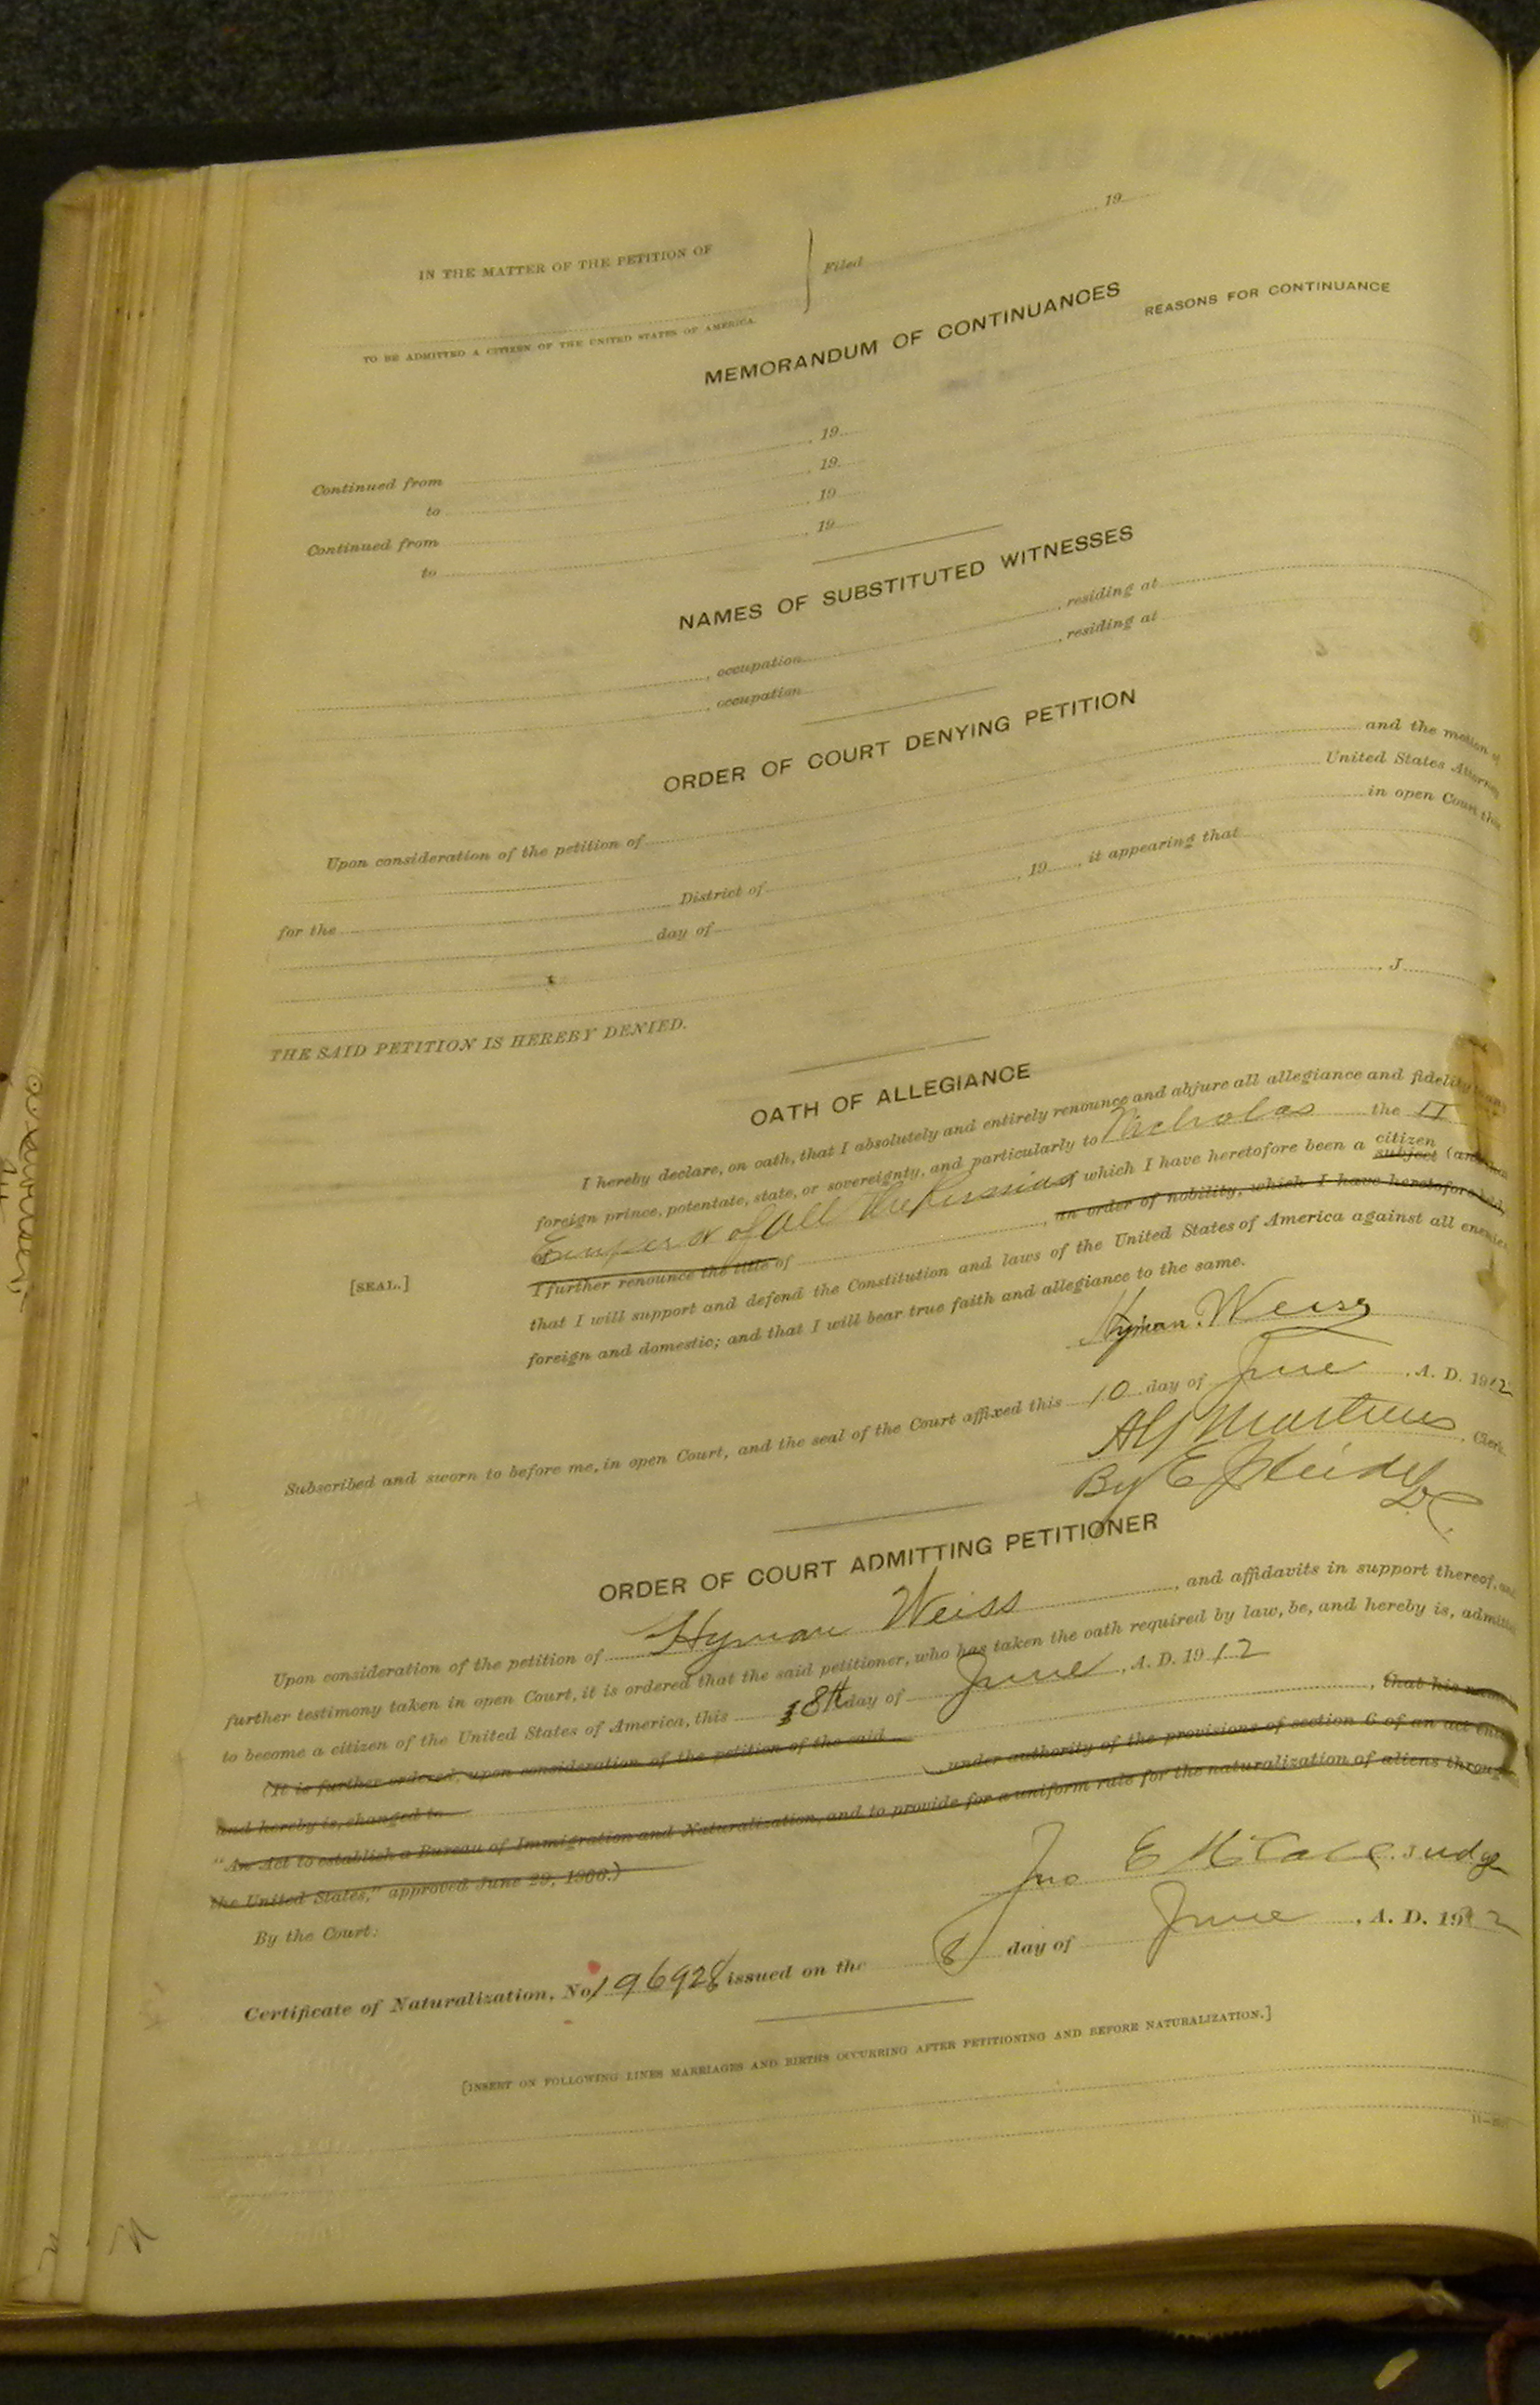 IN THE MATTER OF THE PETITION OF
Filed , 19
TO BE ADMITTED A CITIZEN OF THE UNITED STATES OF AMERICA.
MEMORANDUM OF CONTINUANCES
REASONS FOR CONTINUANCE
Continued from , 19
to , 19
Continued from , 19
to , 19
NAMES OF SUBSTITUTED WITNESSES
, occupation , residing at
, occupation , residing at
ORDER OF COURT DENYING PETITION
Upon consideration of the petition of and the motion of
United States Attorney
for the District of in open Court this
day of , 19 , it appearing that
THE SAID PETITION IS HEREBY DENIED.
, J
OATH OF ALLEGIANCE
I hereby declare, on oath, that I absolutely and entirely renounce and abjure all allegiance and fidelity
foreign prince, potentate, state, or sovereignty, and particularly to Nicholas the II
Emperor of all the Russias of which I have heretofore been a citizen subject
I further renounce the title of , an order of nobility, which I have heretofore held,
that I will support and defend the Constitution and laws of the United States of America against all enemies
foreign and domestic; and that I will bear true faith and allegiance to the same.
[SEAL.]
Hyman Weiss
Subscribed and sworn to before me, in open Court, and the seal of the Court affixed this 10 day of June , A. D. 1912
, Clerk.
By E
D.C.
ORDER OF COURT ADMITTING PETITIONER
Upon consideration of the petition of Hyman Weiss , and affidavits in support thereof, and
further testimony taken in open Court, it is ordered that the said petitioner, who has taken the oath required by law, be, and hereby is, admitted
to become a citizen of the United States of America, this 8th day of June , A. D. 1912
(It is further ordered, upon consideration of the petition of the said , that his name
and hereby is, changed to , under authority of the provisions of section 6 of an act
"An Act to establish a Bureau of Immigration and Naturalization, and to provide for a uniform rule for the naturalization of aliens throughout
the United States," approved June 29, 1906.)
By the Court:
Jno E Judge
Certificate of Naturalization, No 196928 issued on the 8 day of June , A. D. 1912
[INSERT ON FOLLOWING LINES MARRIAGES AND BIRTHS OCCURRING AFTER PETITIONING AND BEFORE NATURALIZATION.]